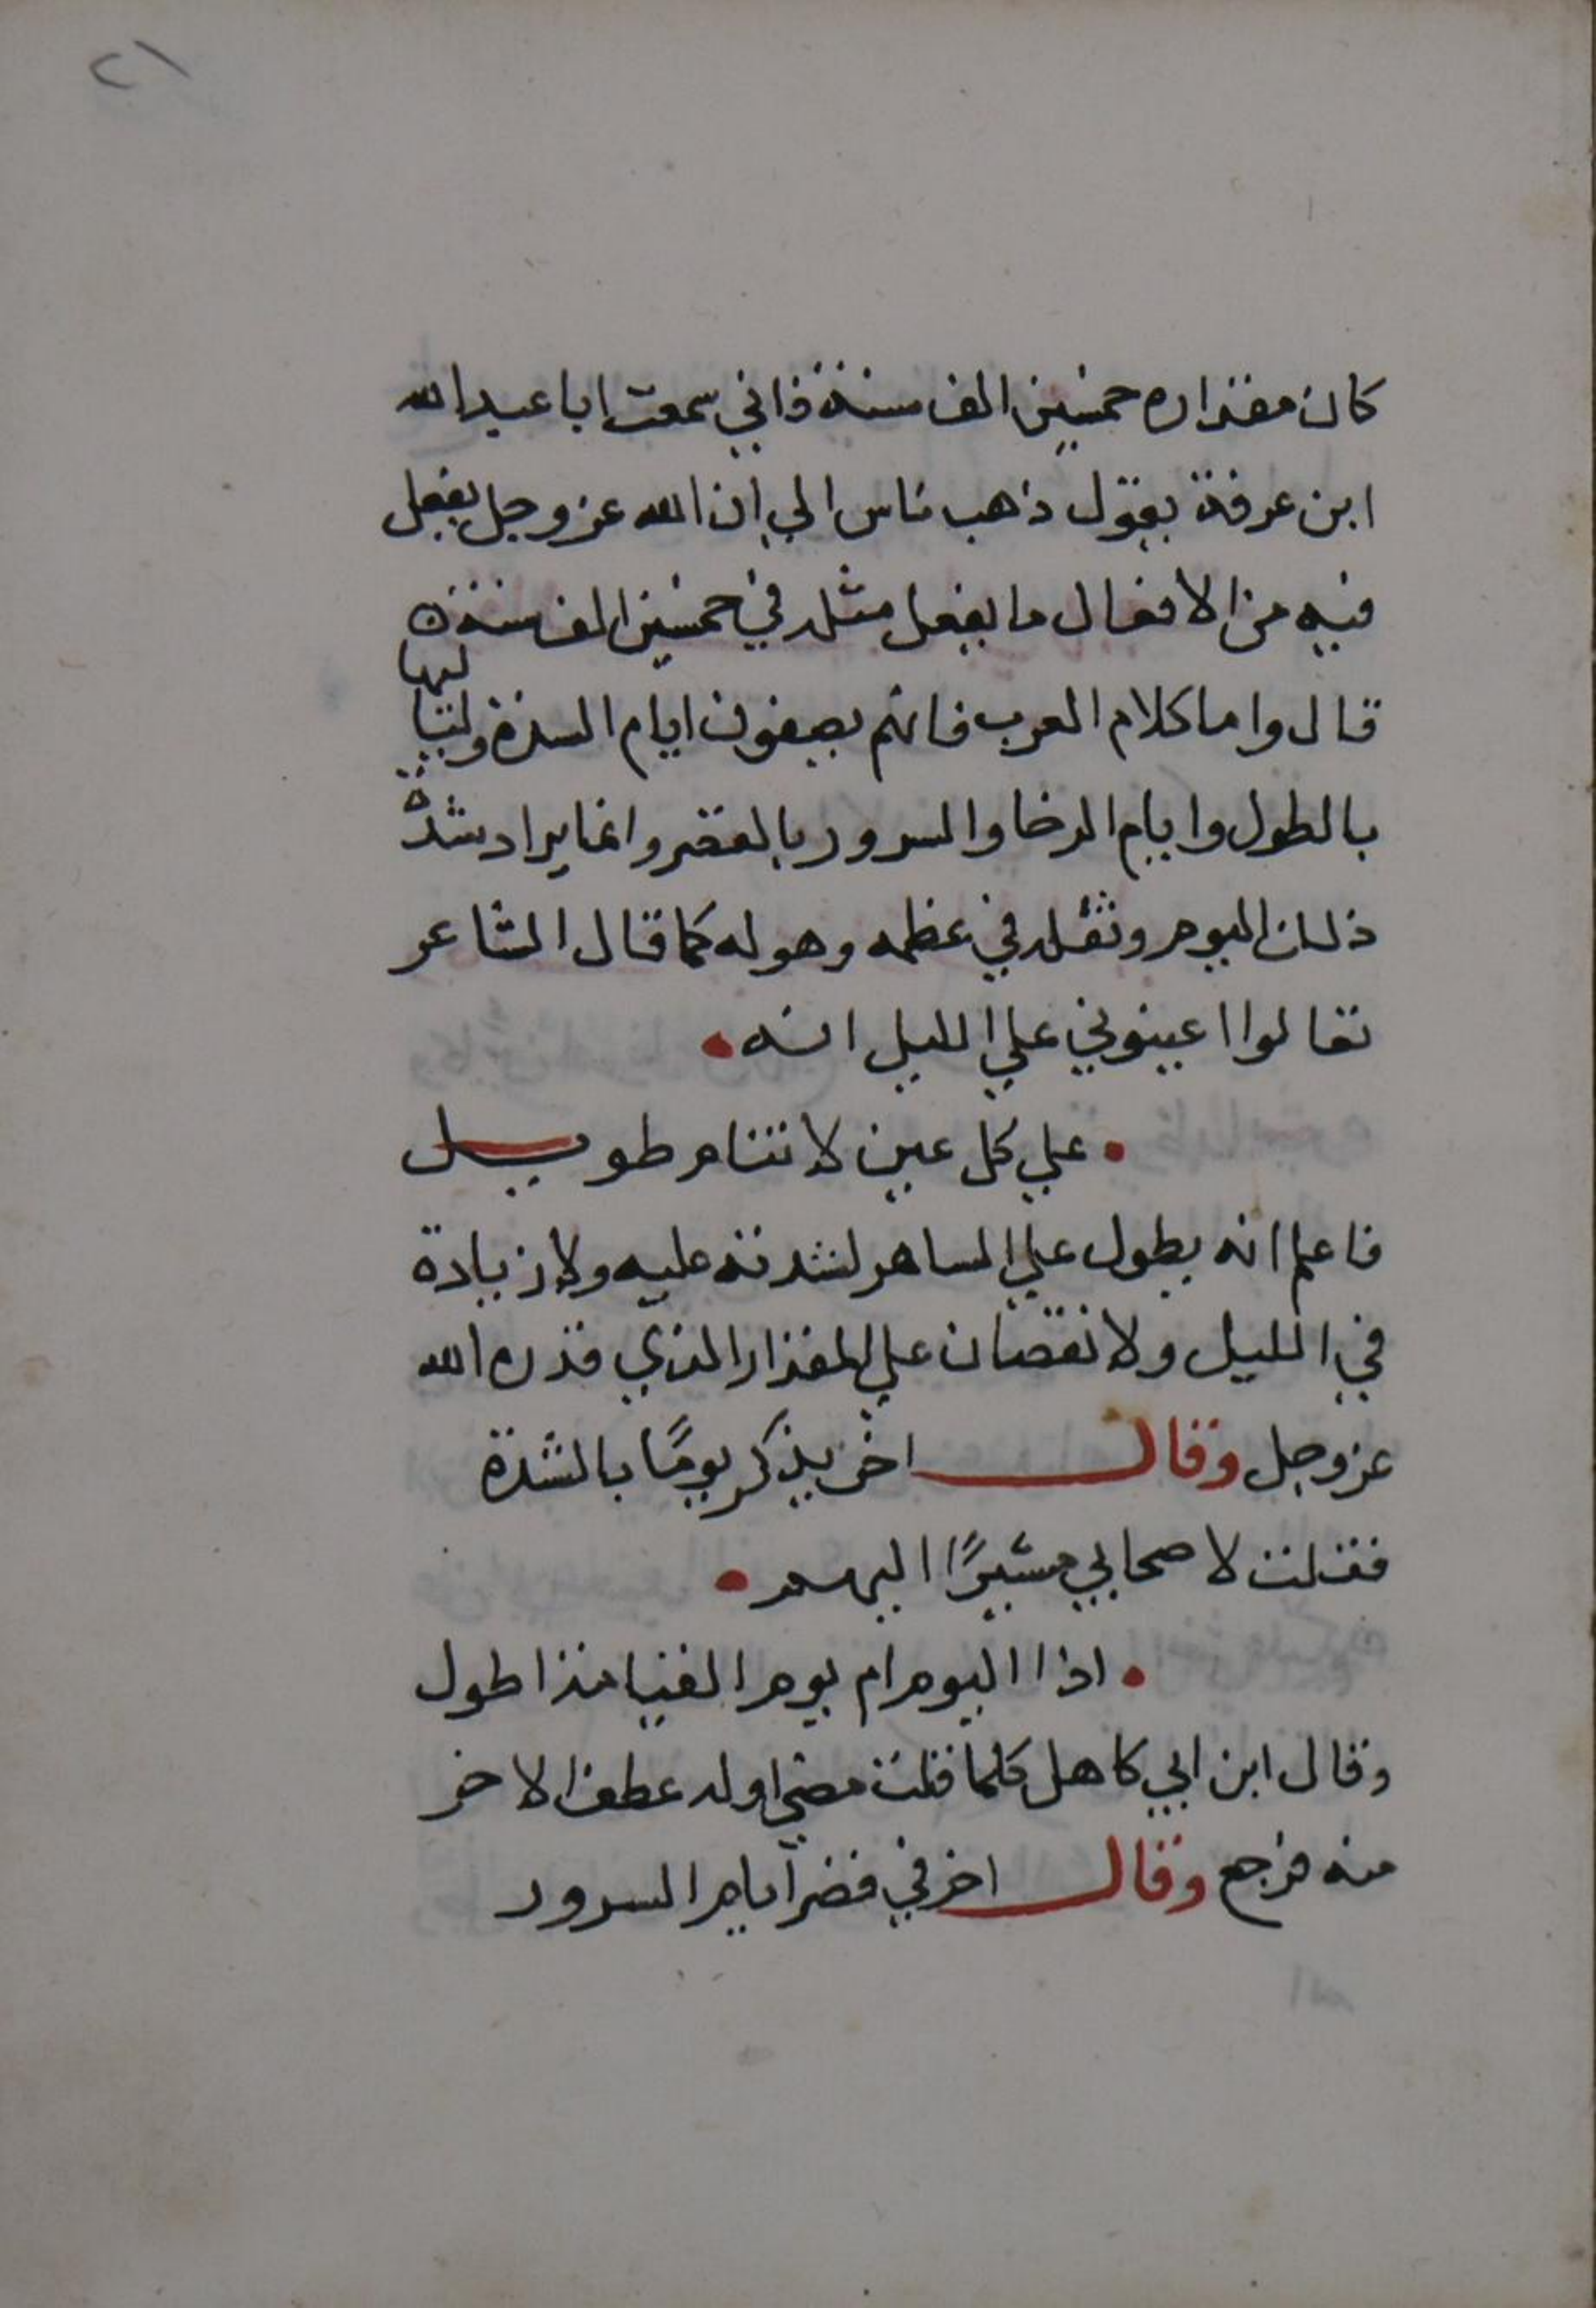 ٢١
كان مقداره خمسين الف سنة فاني سمعت ابا عبد الله
ابن عرفة يقول ذهب ناس الي ان الله عز وجل يفعل
فيه من الافعال ما يفعل مثله في خمسين الف سنة
قال واما كلام العرب فانهم يصفون ايام الشدة ولياليها
بالطول وايام الرخا والسرور بالقصر وانما يراد شدة
ذلك اليوم وثقله في عظمه وهوله كما قال الشاعر
تعالوا اعينوني علي الليل انه
علي كل عين لا تنام طويل
فاعلم انه يطول علي الساهر لشدته عليه ولا زيادة
في الليل ولا نقصان علي المقدار الذي قدره الله
عز وجل وقال اخر يذكر يومًا بالشدة
فقلت لاصحابي مشيرًا اليهم
اذا اليوم ام يوم القيامة اطول
وقال ابن ابي كاهل كلما قلت مضي اوله عطف الاخر
منه فرجع وقال اخر في قصر ايام السرور